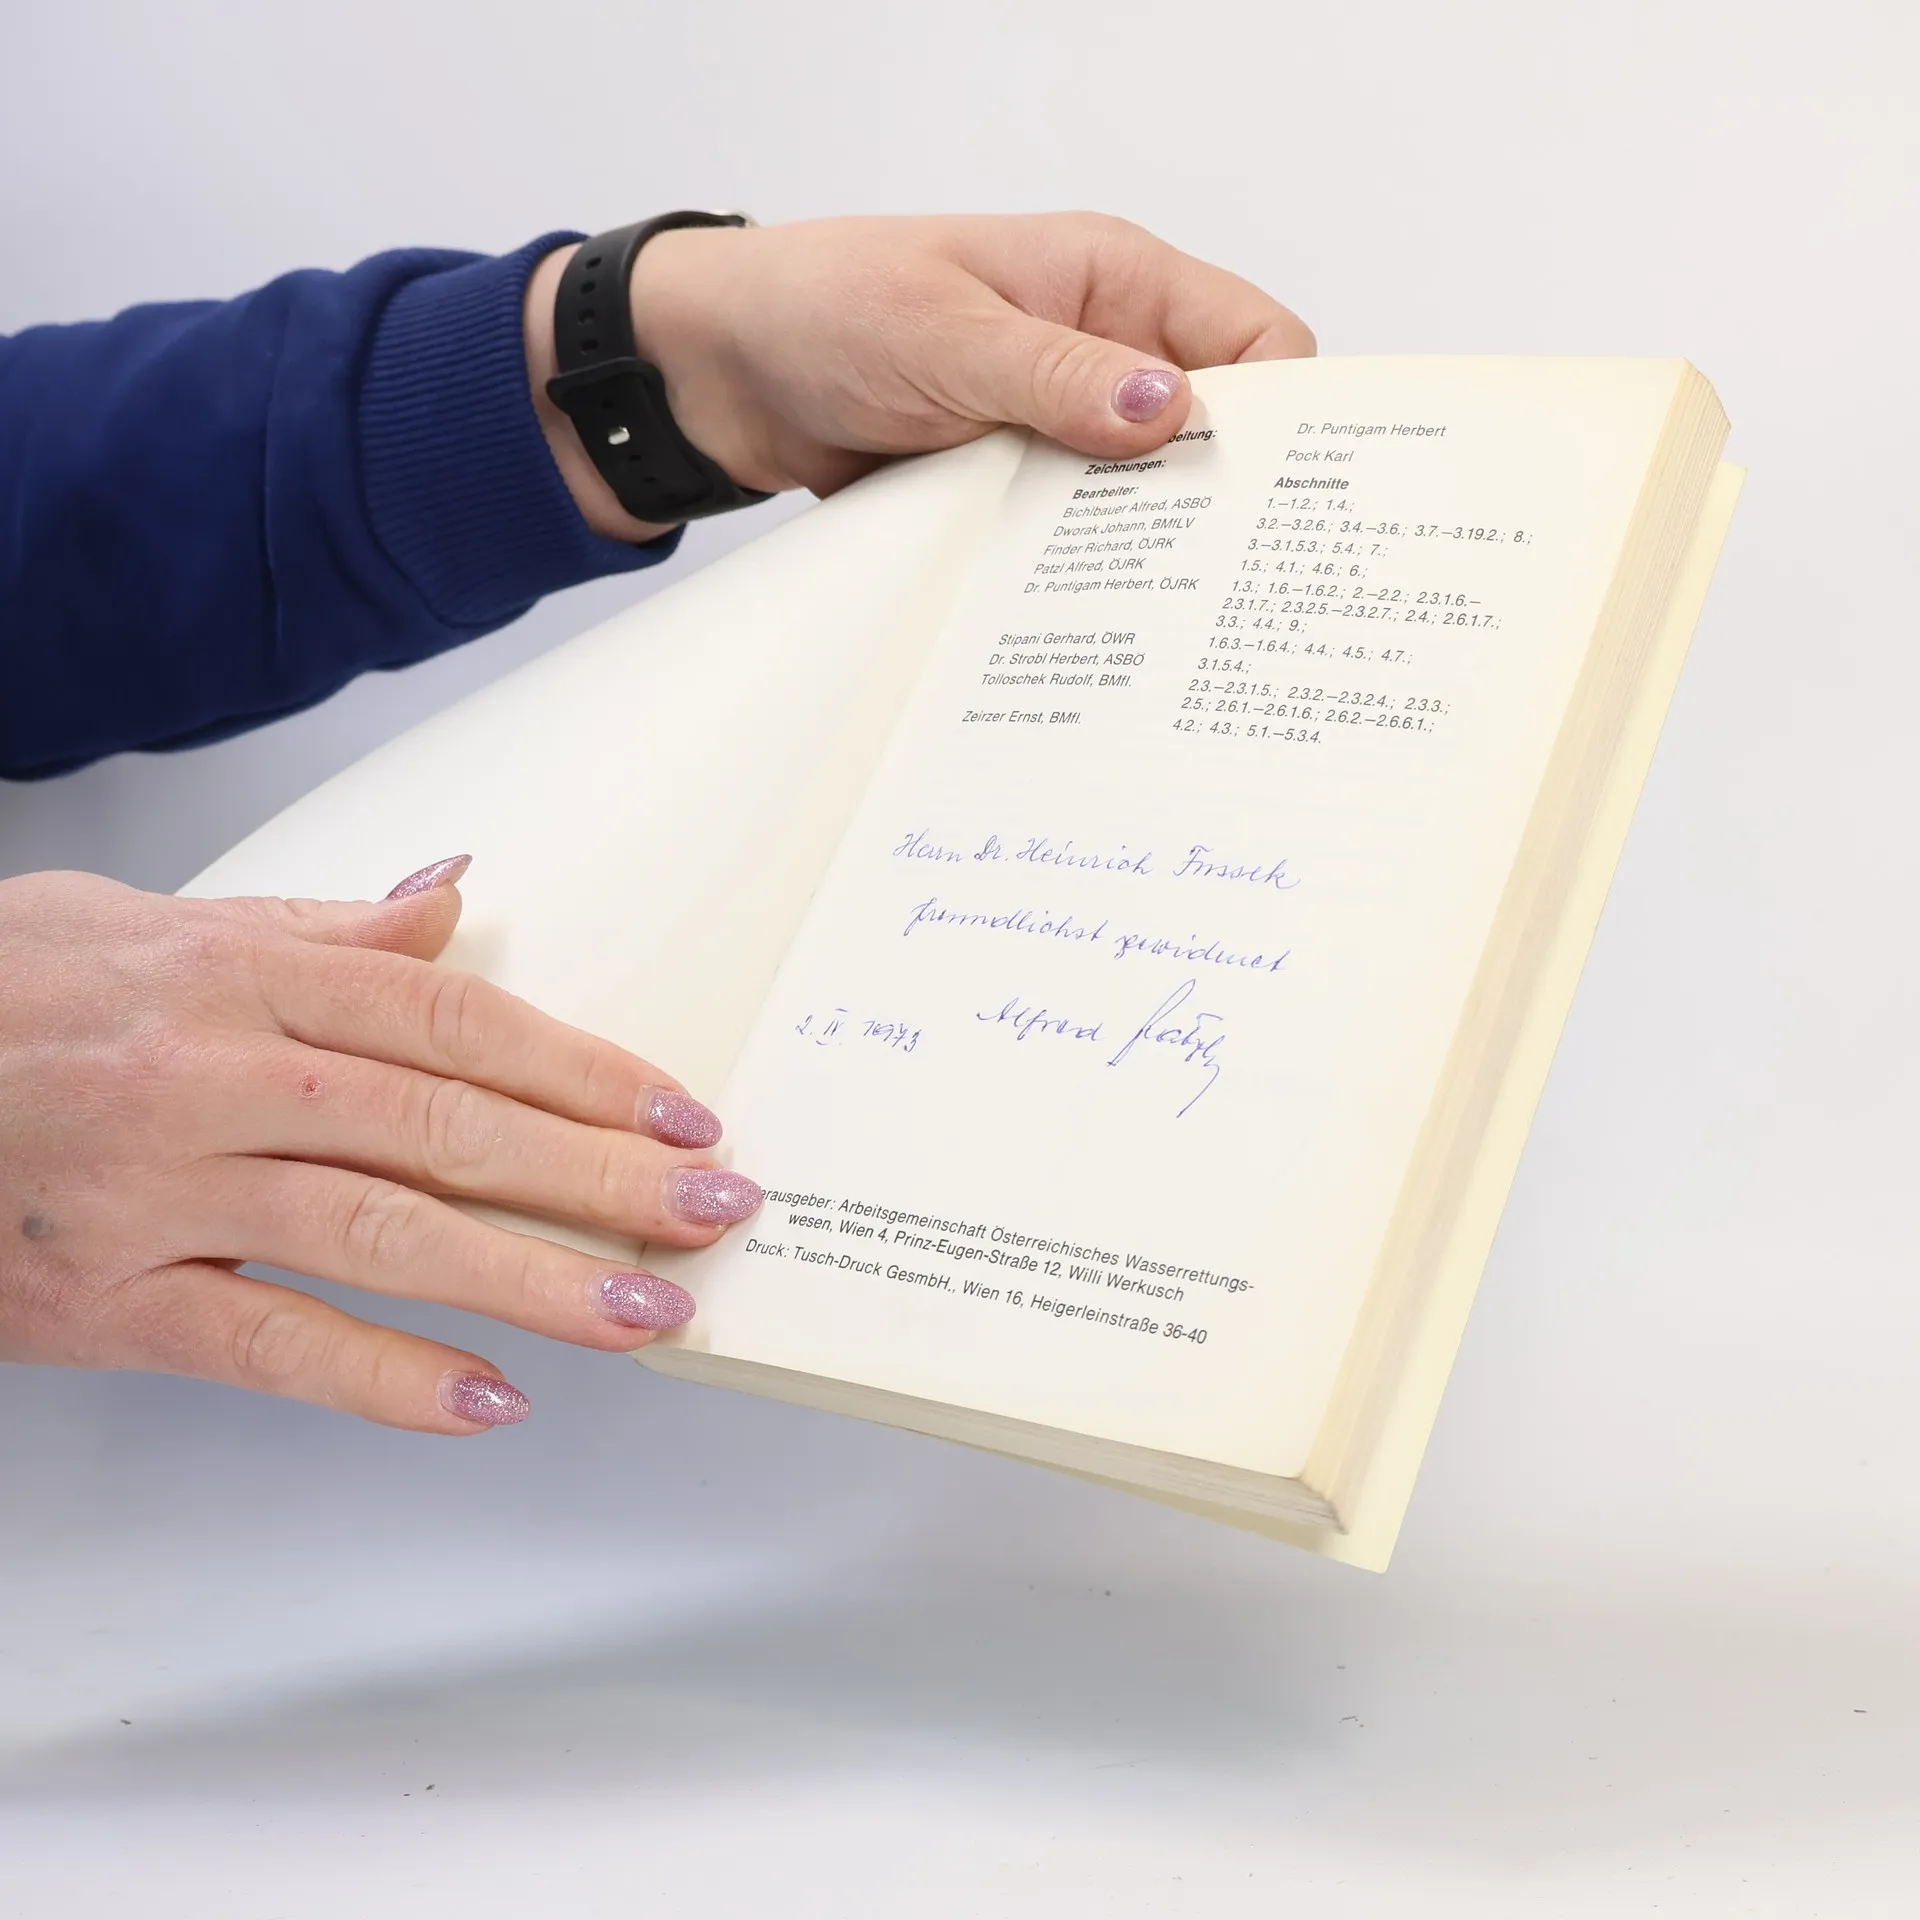 beitung: Dr. Puntigam Herbert
Zeichnungen: Pock Karl
Bearbeiter: Abschnitte
Bichlbauer Alfred, ASBÖ 1.—1.2.; 1.4.;
Dworak Johann, BMfLV 3.2.—3.2.6.; 3.4.—3.6.; 3.7.—3.19.2.; 8.;
Finder Richard, ÖJRK 3.—3.1.5.3.; 5.4.; 7.;
Patzl Alfred, ÖJRK 1.5.; 4.1.; 4.6.; 6.;
Dr. Puntigam Herbert, ÖJRK 1.3.; 1.6.—1.6.2.; 2.—2.2.; 2.3.1.6.—
2.3.1.7.; 2.3.2.5.—2.3.2.7.; 2.4.; 2.6.1.7.;
3.3.; 4.4.; 9.;
Stipani Gerhard, ÖWR 1.6.3.—1.6.4.; 4.4.; 4.5.; 4.7.;
Dr. Strobl Herbert, ASBÖ 3.1.5.4.;
Tolloschek Rudolf, BMfl. 2.3.—2.3.1.5.; 2.3.2.—2.3.2.4.; 2.3.3.;
2.5.; 2.6.1.—2.6.1.6.; 2.6.2.—2.6.6.1.;
Zeirzer Ernst, BMfl. 4.2.; 4.3.; 5.1.—5.3.4.
Herrn Dr. Heinrich
freundlichst gewidmet
2. IV. 1973 Alfred Patzl
erausgeber: Arbeitsgemeinschaft Österreichisches Wasserrettungs-
wesen, Wien 4, Prinz-Eugen-Straße 12, Willi Werkusch
Druck: Tusch-Druck GesmbH., Wien 16, Heigerleinstraße 36-40